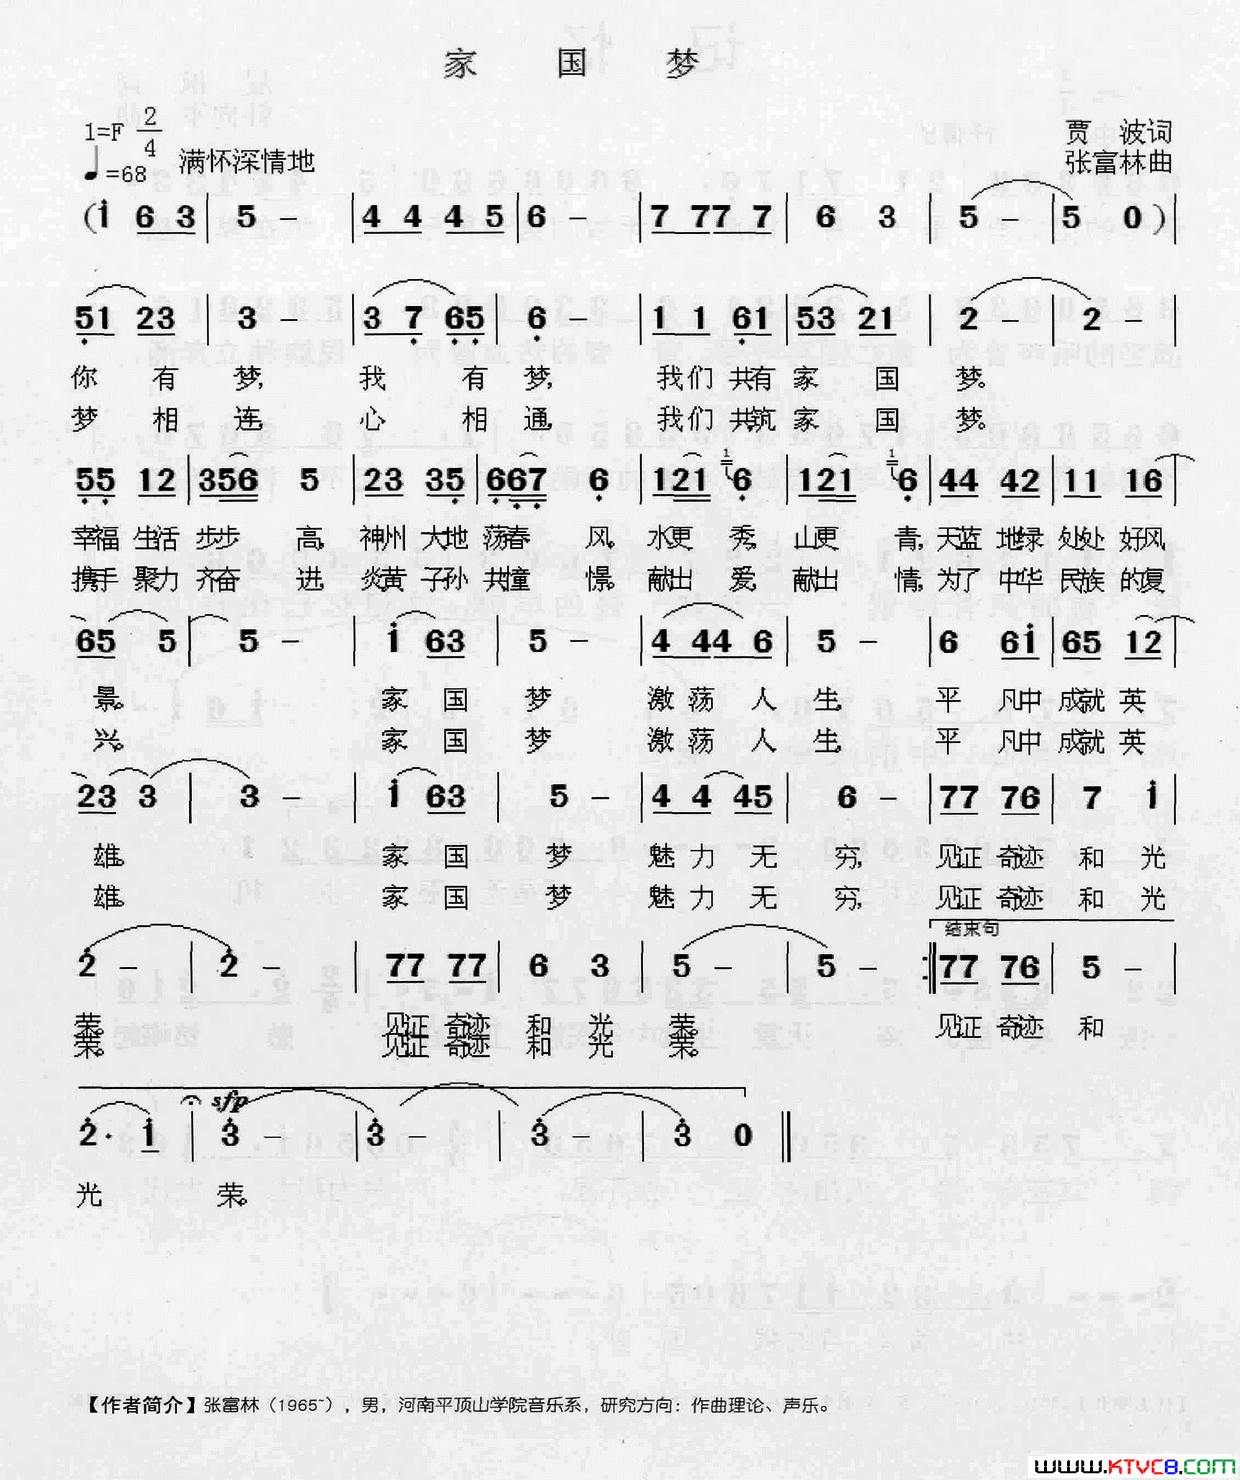 家国梦
1=F 2/4
♩=68 满怀深情地
贾波词
张富林曲
(i 6 3 | 5 – | 4 4 4 5 | 6 – | 7 77 7 | 6 3 | 5 – | 5 0 ) |
51 23 | 3 – | 3 7 65 | 6 – | 1 1 61 | 53 21 | 2 – | 2 – |
你有梦,我有梦,我们共有家国梦。
梦相连,心相通,我们共筑家国梦。
55 12 | 356 5 | 23 35 | 667 6 | 121 1 6 | 121 1 6 | 44 42 | 11 16 |
幸福生活步步高,神州大地荡春风,水更秀,山更青,天蓝地绿处处好风
携手聚力齐奋进,炎黄子孙共憧憬,献出爱,献出情,为了中华民族的复
65 5 | 5 – | i 63 | 5 – | 4 44 6 | 5 – | 6 6i | 65 12 |
景。家国梦激荡人生,平凡中成就英
兴。家国梦激荡人生,平凡中成就英
23 3 | 3 – | i 63 | 5 – | 4 4 45 | 6 – | 77 76 | 7 i |
雄。家国梦魅力无穷,见证奇迹和光
雄。家国梦魅力无穷,见证奇迹和光
结束句
2 – | 2 – | 77 77 | 6 3 | 5 – | 5 – :‖ 77 76 | 5 – |
荣。见证奇迹和光荣。见证奇迹和
荣。见证奇迹和光荣。
sfp
2· i | 3 – | 3 – | 3 – | 3 0 ‖
光荣。
【作者简介】张富林(1965~),男,河南平顶山学院音乐系,研究方向:作曲理论、声乐。
www.KTVC8.com